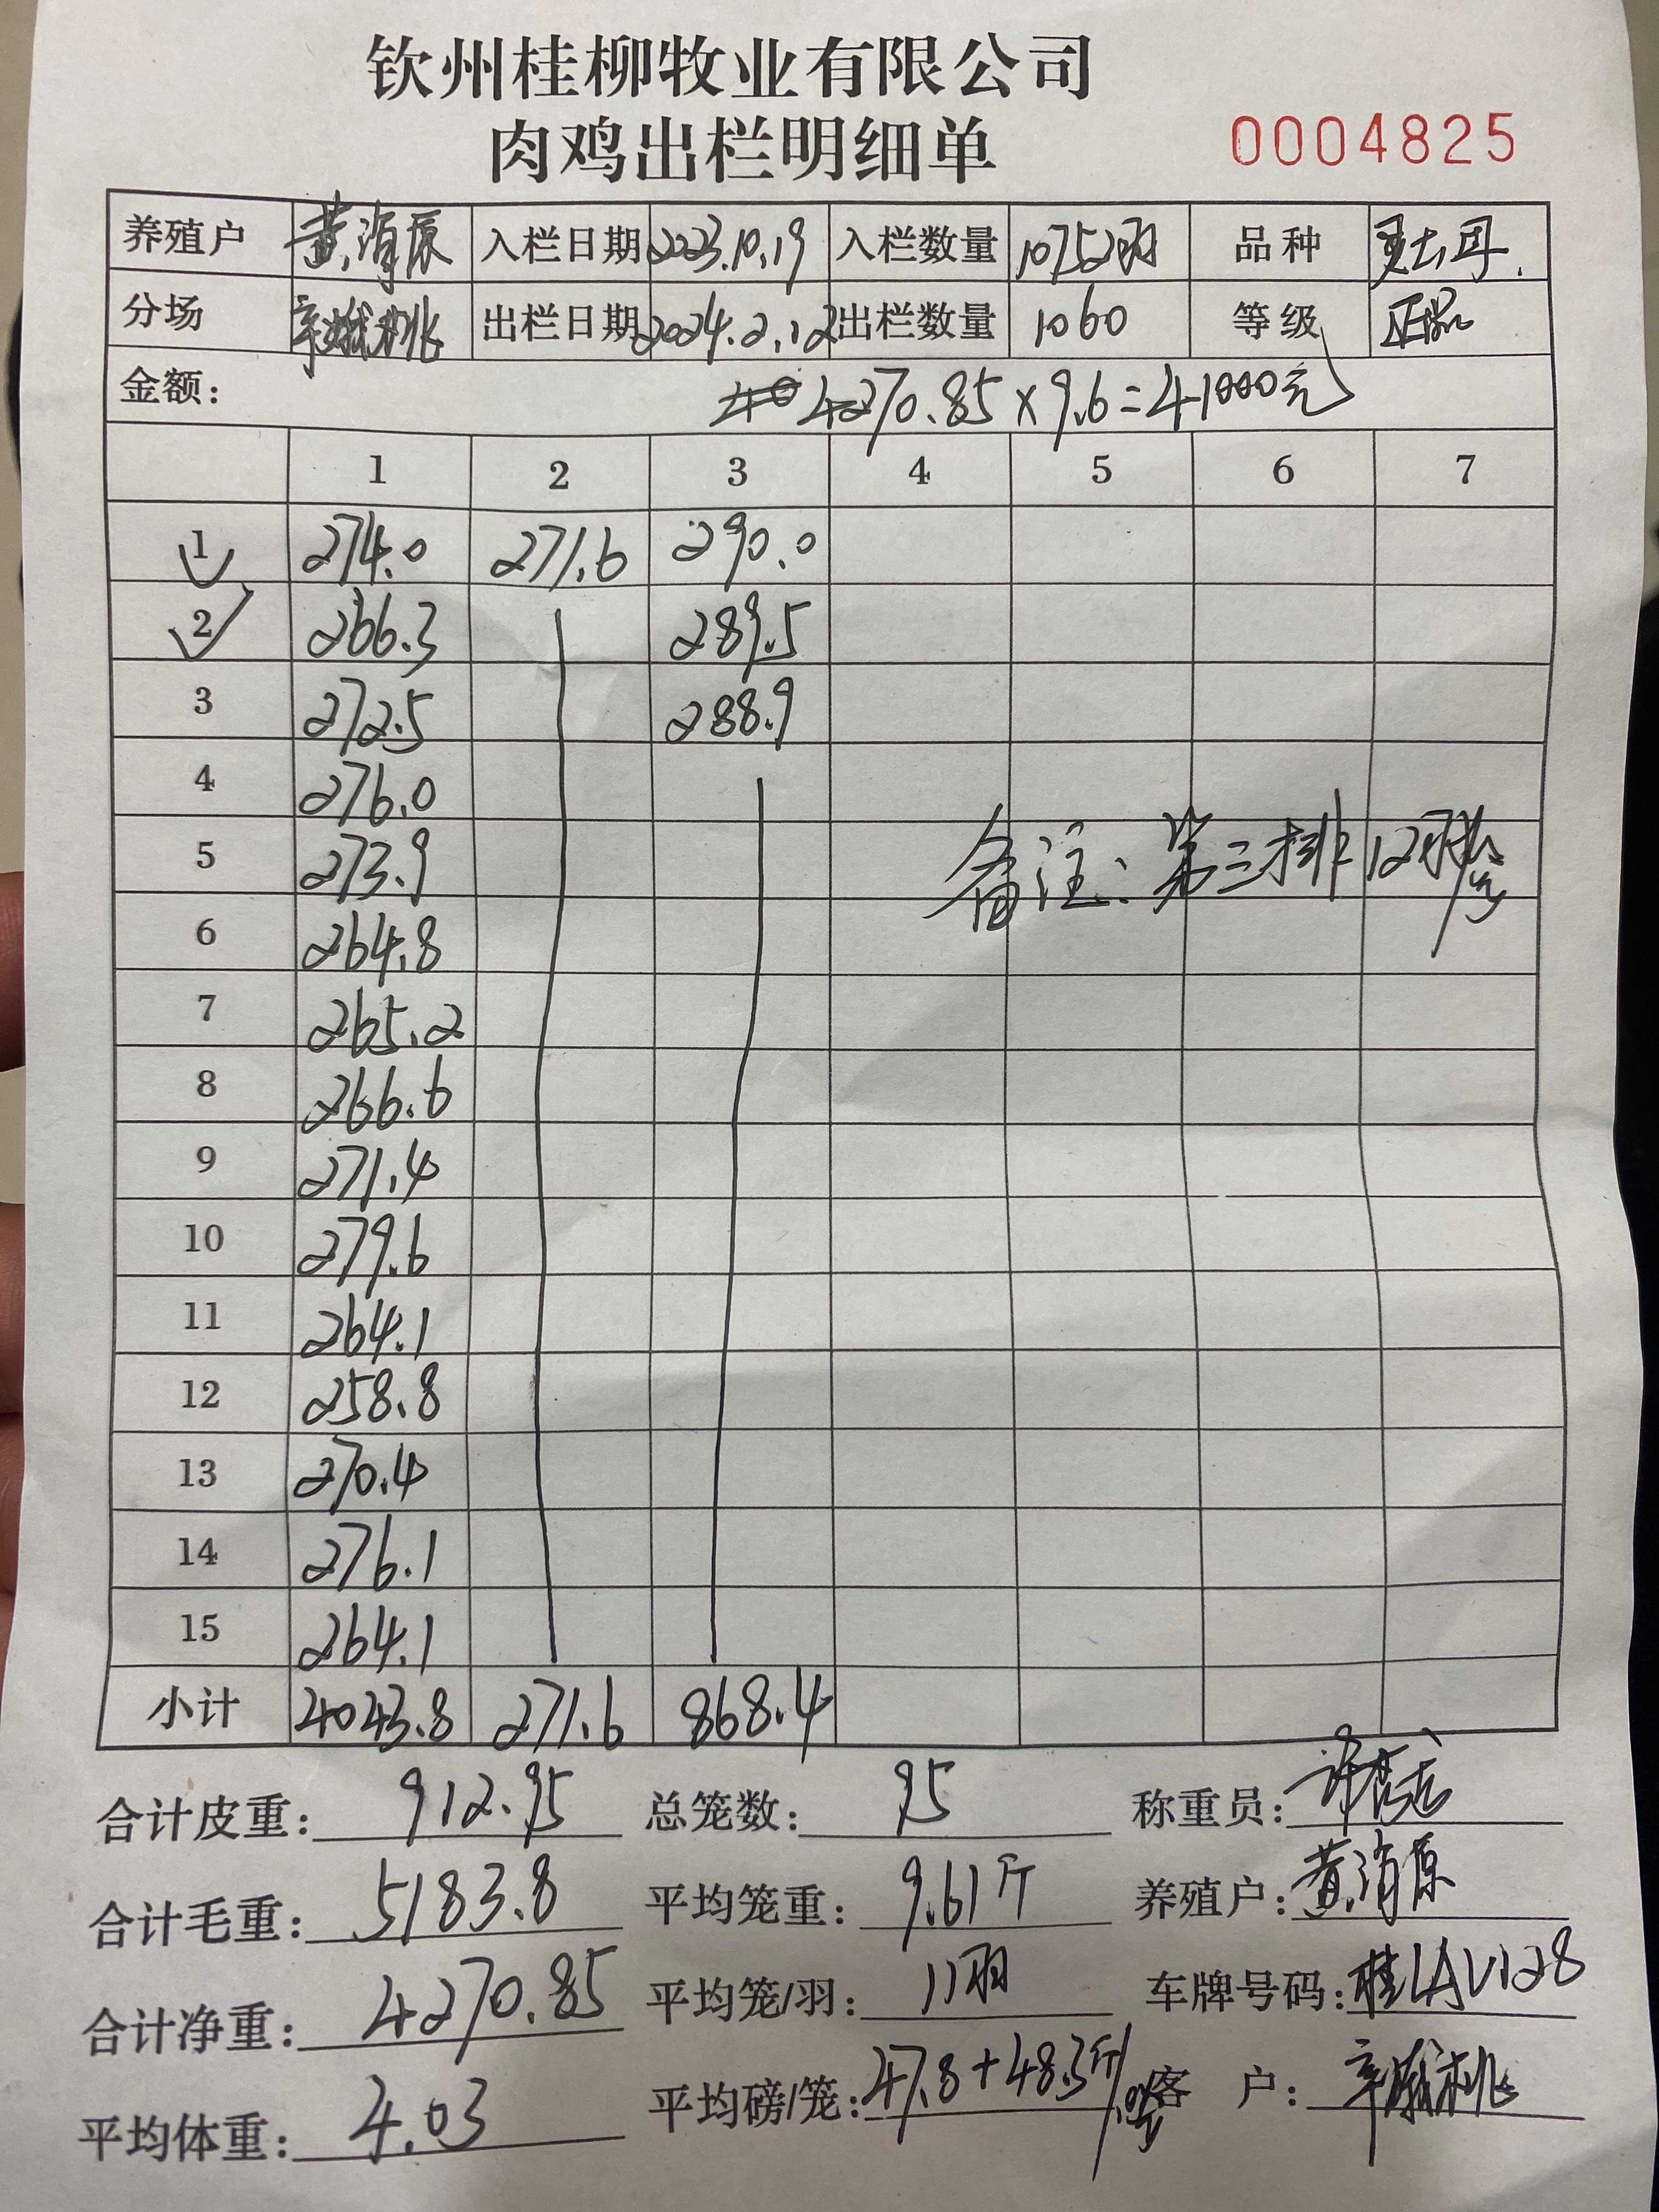 钦州桂柳牧业有限公司
肉鸡出栏明细单 0004825
养殖户 黄消原 入栏日期 2023.10.19 入栏数量 10752羽 品种
分场 出栏日期 2024.2.12 出栏数量 1060 等级 正品
金额: 4270.85×9.6=41000元
1 2 3 4 5 6 7
1 274.0 271.6 290.0
2 266.3 289.5
3 272.5 288.9
4 276.0
5 273.9 备注:第三排12羽/笼
6 264.8
7 265.2
8 266.6
9 271.4
10 279.6
11 264.1
12 258.8
13 270.4
14 276.1
15 264.1
小计 4043.8 271.6 868.4
合计皮重: 912.95 总笼数: 95 称重员:
合计毛重: 5183.8 平均笼重: 9.61斤 养殖户: 黄消原
合计净重: 4270.85 平均笼/羽: 11羽 车牌号码: 桂LAV128
平均体重: 4.03 平均磅/笼: 47.8+48.3斤/笼 客 户: